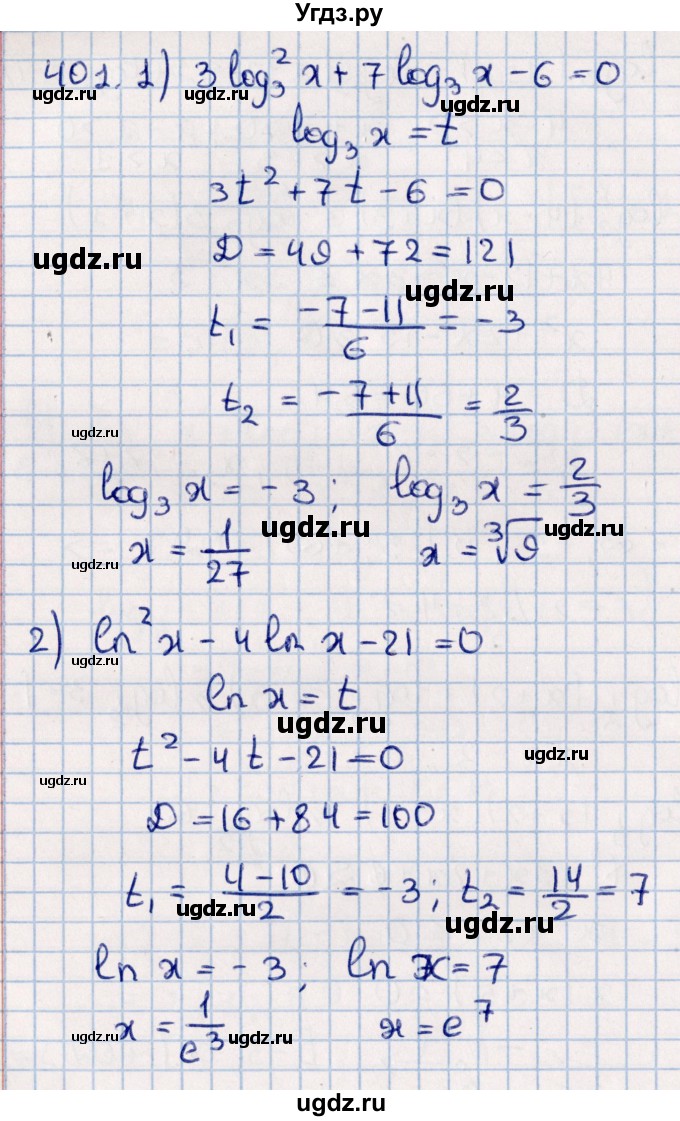 Угдз.ру
401. 1) 3 log₃² x + 7 log₃ x - 6 = 0
ugdz.ru ugdz.ru ugdz.ru
log₃ x = t
3t² + 7t - 6 = 0
D = 49 + 72 = 121
ugdz.ru ugdz.ru
t₁ = (-7-11)/6 = -3
t₂ = (-7+11)/6 = 2/3
ugdz.ru
log₃ x = -3; log₃ x = 2/3
ugdz.ru ugdz.ru
x = 1/27 x = ∛9
ugdz.ru
2) ln² x - 4 ln x - 21 = 0
ugdz.ru
ln x = t
ugdz.ru
t² - 4t - 21 = 0
ugdz.ru
ugdz.ru
D = 16 + 84 = 100
t₁ = (4-10)/2 = -3; t₂ = 14/2 = 7
ugdz.ru ugdz.ru
ln x = -3; ln x = 7
x = 1/e³ x = e⁷
ugdz.ru ugdz.ru
ugdz.ru